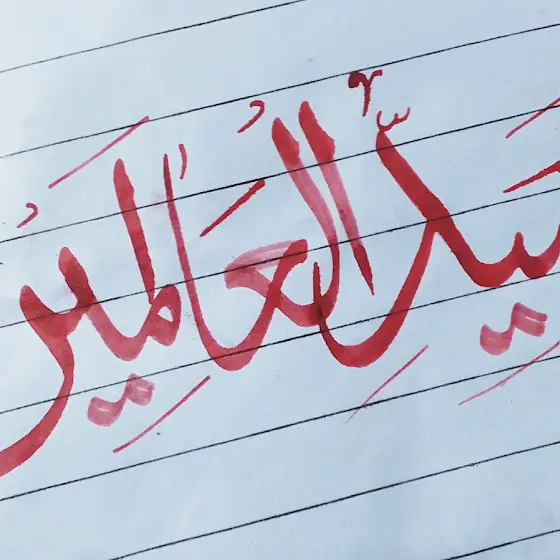 يِّدِ الْعَالَمِين